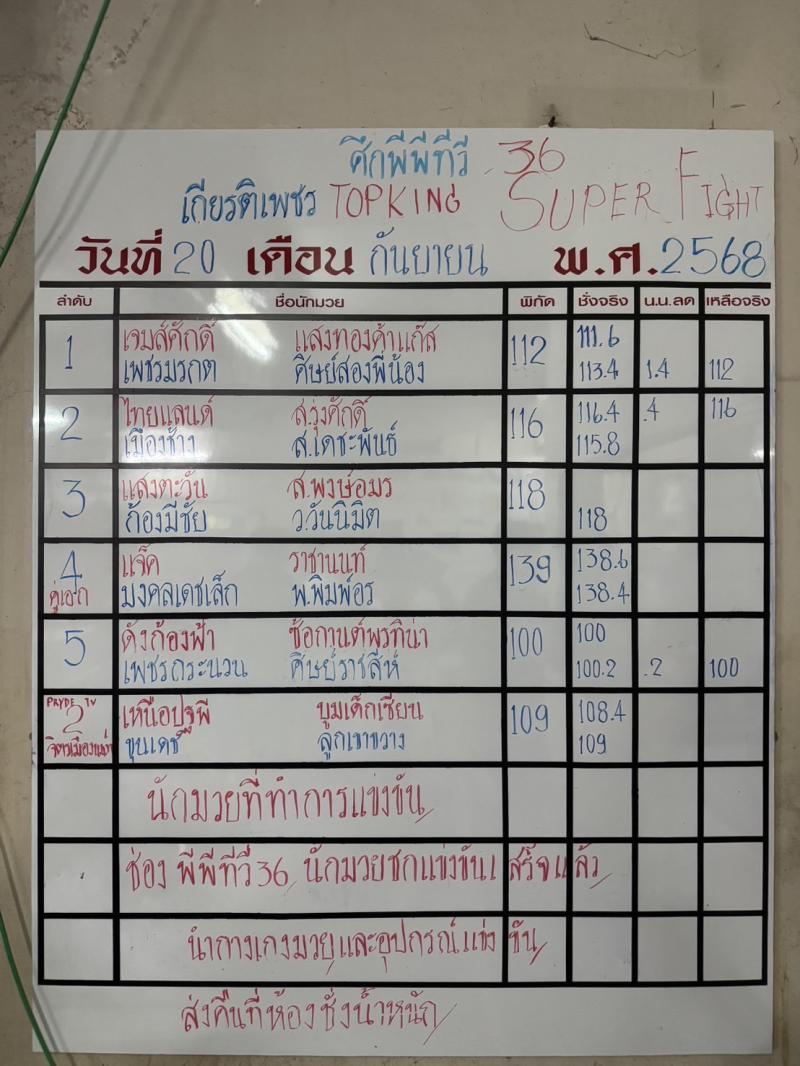 ศึกพีพีทีวี 36
เกียรติเพชร TOPKING SUPER FIGHT
วันที่ 20 เดือน กันยายน พ.ศ. 2568
ลำดับ ชื่อนักมวย พิกัด ชั่งจริง น.น.ลด เหลือจริง
1 เจมส์ศักดิ์ แสงทองค้าแก๊ส 112 111.6
เพชรมรกต ศิษย์สองพี่น้อง 113.4 1.4 112
2 ไทยแลนด์ ส.รุ่งศักดิ์ 116 116.4 .4 116
เมืองช้าง ส.เดชะพันธ์ 115.8
3 แสงตะวัน ส.พงษ์อมร 118
ก้องมีชัย ว.วันนิมิต 118
4 แจ็ค ราชานนท์ 139 138.6
คู่เอก มงคลเดชเล็ก พ.พิมพ์อร 138.4
5 ดังก้องฟ้า ช้อกานต์พรทิน่า 100 100
เพชรกระนวน ศิษย์ราชสีห์ 100.2 .2 100
PRYDE TV เหนือปฐพี บูมเด็กเซียน 109 108.4
ขุนเดช ลูกเขาขวาง 109
นักมวยที่ทำการแข่งขัน
ช่อง พีพีทีวี 36 นักมวยชกแข่งขันเสร็จแล้ว
นำกางเกงมวยและอุปกรณ์แข่งขัน
ส่งคืนที่ห้องชั่งน้ำหนัก